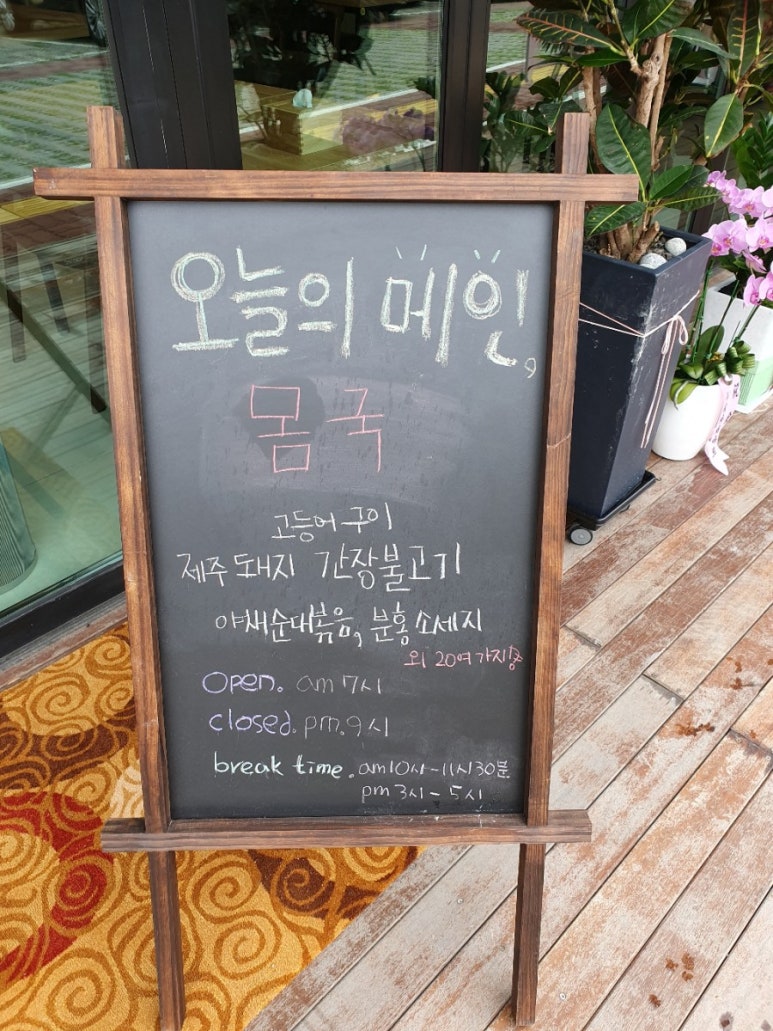 오늘의 메인,
몸국
고등어 구이
제주 돼지 간장불고기
야채순대볶음, 분홍 소세지
외 20여가지 중
open. am 7시
closed. pm. 9시
break time. am 10시 - 11시 30분
pm 3시 - 5시